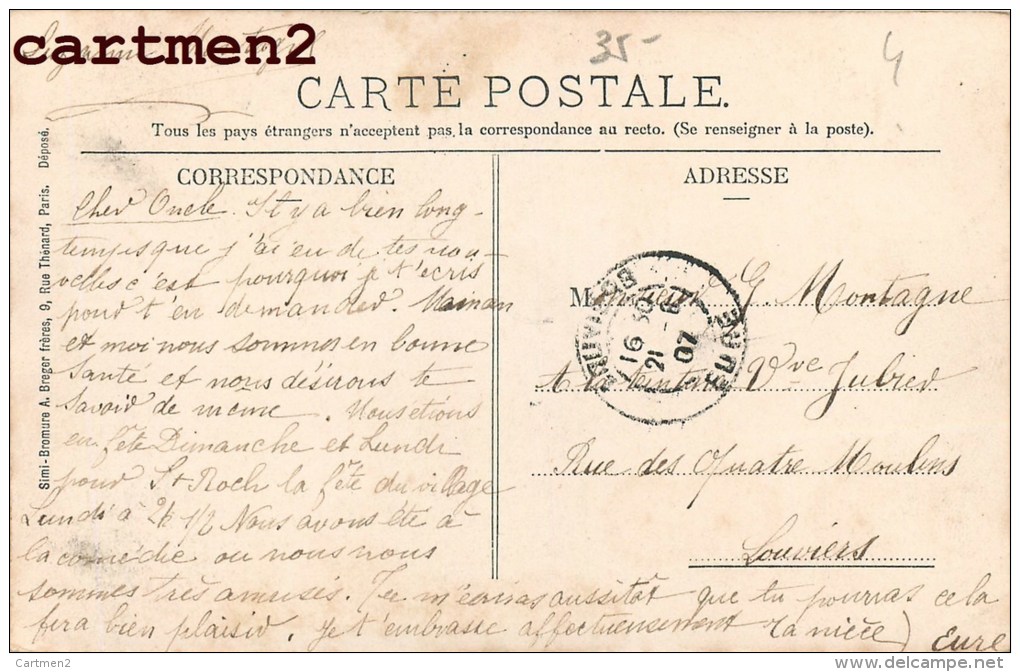 cartmen2
35-
4
CARTE POSTALE.
Tous les pays étrangers n'acceptent pas la correspondance au recto. (Se renseigner à la poste).
CORRESPONDANCE
Cher Oncle. Il y a bien long-
temps que j'ai eu de tes nou-
velles c'est pourquoi je t'écris
pour t'en demander. Maman
et moi nous sommes en bonne
santé et nous désirons te
savoir de même. Nous étions
en fête Dimanche et Lundi
pour St Roch la fête du village
Lundi à 2h 1/2 Nous avons été à
la comédie ou nous nous
sommes très amusés. Tu m'écriras aussitôt que tu pourras cela
fera bien plaisir. Je t'embrasse affectueusement ta nièce
ADRESSE
Monsieur G. Montagne
A la teinture Vve Jubier
Rue des Quatre Moulins
Louviers
Eure
LOUVIERS
16 30
21 -8
07
EURE
Simi-Bromure A. Breger frères, 9, Rue Thénard, Paris. Déposé.
Cartmen2
www.delcampe.net